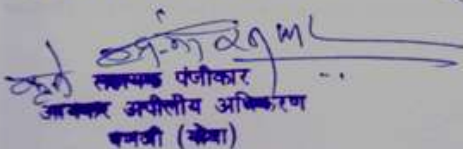 कृते सहायक पंजीकार
आयकर अपीलीय अधिकरण
पणजी (गोवा)